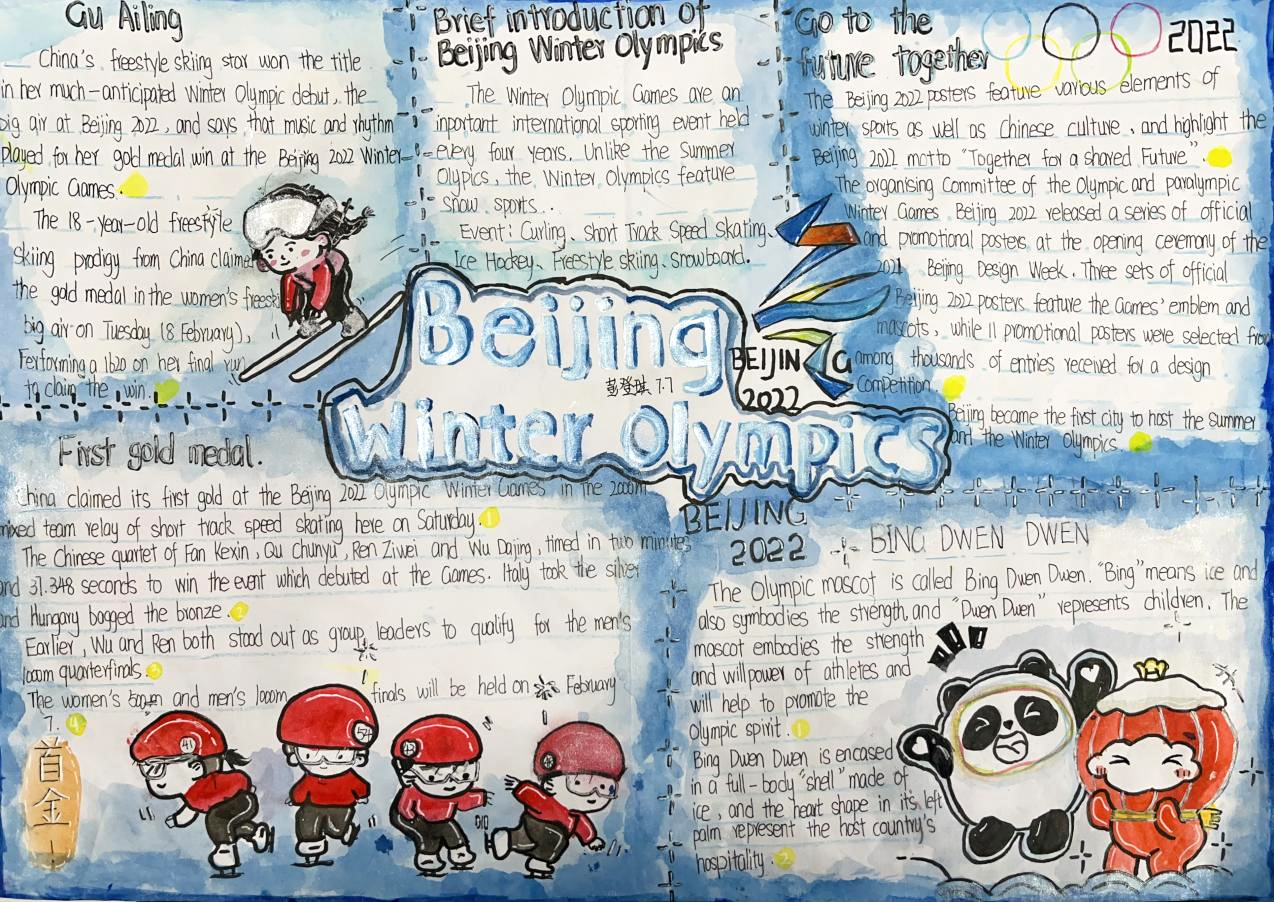 Gu Ailing
China's freestyle skiing star won the title
in her much-anticipated Winter Olympic debut, the
big air at Beijing 2022, and says that music and rhythm
played for her gold medal win at the Beijing 2022 Winter
Olympic Games.
The 18-year-old freestyle
skiing prodigy from China claimed
the gold medal in the women's freeski
big air on Tuesday (8 February),
Ferforming a 1620 on her final run
to claim the win.
Brief introduction of
Beijing Winter Olympics
The Winter Olympic Games are an
inportant international sporting event held
every four years. Unlike the Summer
Olypics, the Winter Olympics feature
snow sports..
Event: Curling、short Track Speed skating、
Ice Hockey、Freestyle skiing、snowboard.
Go to the
future together
2022
The Beijing 2022 posters feature various elements of
winter sports as well as Chinese culture, and highlight the
Beijing 2022 motto "Together for a shared Future".
The organising Committee of the Olympic and paralympic
Winter Games Beijing 2022 released a series of official
and promotional posters at the opening ceremony of the
2021 Beijing Design Week. Three sets of official
Beijing 2022 posters feature the Games' emblem and
mascots, while 11 promotional posters were selected from
among thousands of entries received for a design
competition.
Beijing became the first city to host the summer
and the Winter Olympics.
Beijing
Winter Olympics
7.7
BEIJING
2022
First gold medal.
China claimed its first gold at the Beijing 2022 Olympic Winter Games in the 2000m
mixed team relay of short track speed skating here on Saturday. 1
The Chinese quartet of Fan Kexin, Qu chunyu, Ren Ziwei and Wu Dajing, timed in two minutes
and 37.348 seconds to win the event which debuted at the Games. Italy took the silver
and Hungary bagged the bronze. 2
Earlier, Wu and Ren both stood out as group leaders to qualify for the men's
1000m quarterfinals. 3
The women's 500m and men's 1000m finals will be held on February
7. 4
首金
41
524
43
BEIJING
2022
BING DWEN DWEN
The Olympic mascot is called Bing Dwen Dwen. "Bing" means ice and
also symbodies the strength, and "Dwen Dwen" represents children. The
mascot embodies the strength
and willpower of athletes and
will help to promote the
olympic spirit. 1
Bing Dwen Dwen is encased
in a full-body "shell" made of
ice, and the heart shape in its left
palm represent the host country's
hospitality. 2